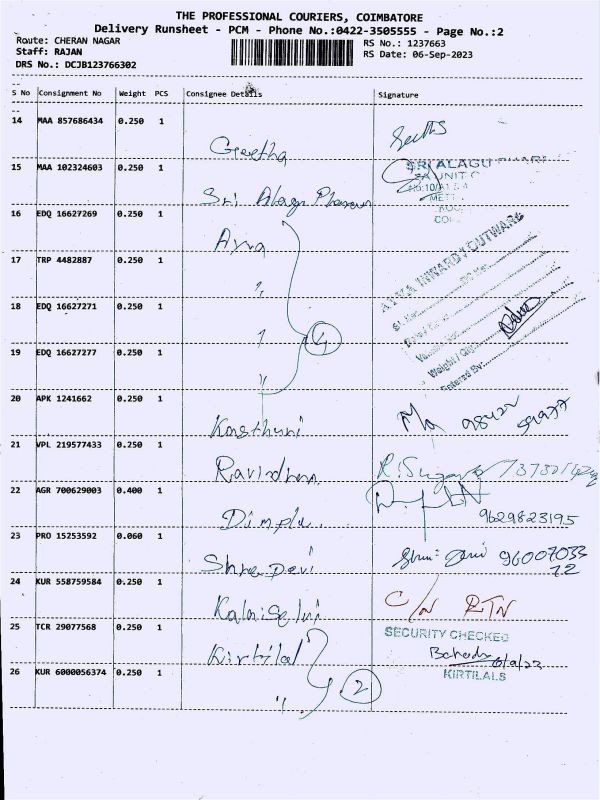 THE PROFESSIONAL COURIERS, COIMBATORE
Delivery Runsheet - PCM - Phone No.:0422-3505555 - Page No.:2
Route: CHERAN NAGAR
Staff: RAJAN
DRS No.: DCJB123766302
RS No.: 1237663
RS Date: 06-Sep-2023
S No Consignment No Weight PCS Consignee Details Signature
14 MAA 857686434 0.250 1 Geetha
15 MAA 102324603 0.250 1 Sri Alagu SRI ALAGU
16 EDQ 16627269 0.250 1
17 TRP 4482887 0.250 1 "
18 EDQ 16627271 0.250 1
19 EDQ 16627277 0.250 1 "
4
INWARD / OUTWARD
Weight / Qty
Entered By
20 APK 1241662 0.250 1 Kasthuri
21 VPL 219577433 0.250 1
22 AGR 700629003 0.400 1 9629823195
23 PRO 15253592 0.060 1 Shree Devi 96007033
72
24 KUR 558759584 0.250 1 C/N RTN
25 TCR 29077568 0.250 1 Kirtilal SECURITY CHECKED
26 KUR 6000056374 0.250 1 " 2 KIRTILALS